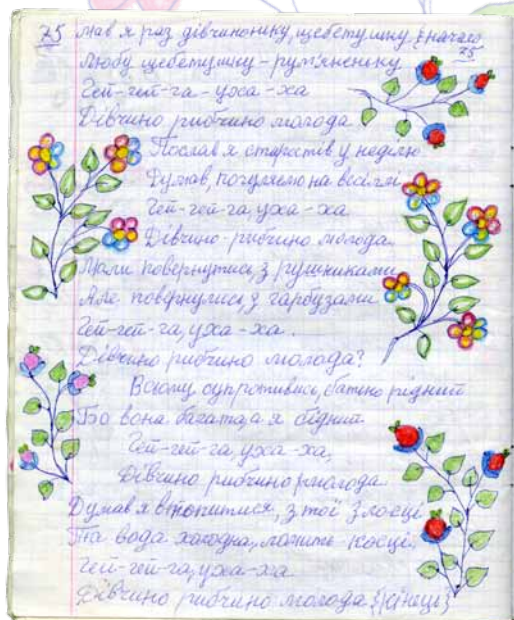 75 мав я раз дівчиноньку, щебетушку, {начало 75
Любу щебетушку - рум'яненьку
Гей-гей-га - уха - ха
Дівчино рибчино молода
Послав я старостів у неділю
Думав, погуляємо на весіллі
Гей-гей-га, уха - ха
Дівчино - рибчино молода.
Мали повернутись, з рушниками
Але повернулись, з гарбузами
Гей-гей-га, уха - ха.
Дівчино рибчино молода?
Всьому супротививсь, батько рідний
Бо вона багата, а я бідний
Гей-гей-га, уха - ха,
Дівчино рибчино молода.
Думав я втопитися, з тої злості
Та вода холодна, ломить кості,
Гей-гей-га, уха-ха
Дівчино рибчино молода {конець}